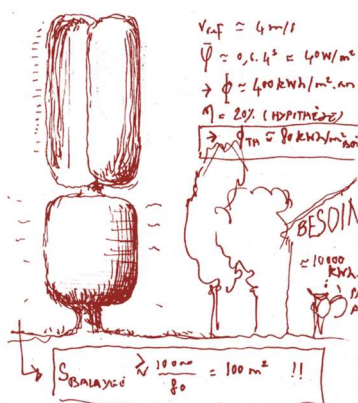 Vref ≃ 4 m/s
φ̄ ≃ 0,6.4³ ≃ 40W/m²
→ ϕ ≃ 400 kWh/m².an
η = 20% (HYPOTHÈSE)
→ ϕTH ≃ 80 kWh/m²
BESOIN
≃ 10000
kWh
SBALAYÉE ≳ 10000 / 80 = 100 m² !!